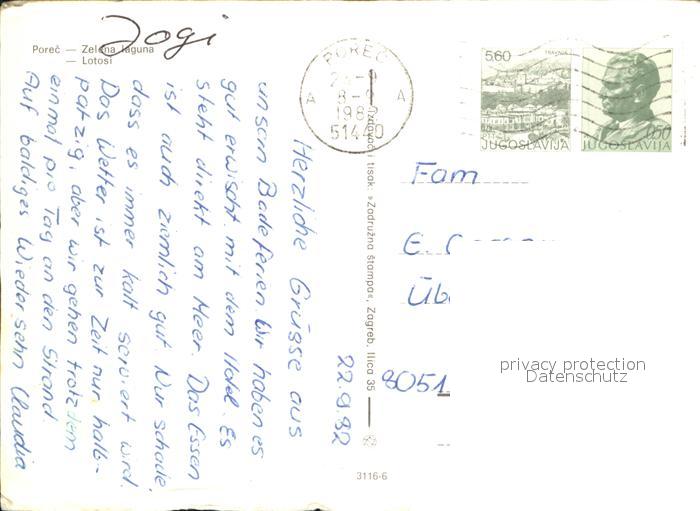 Poreč — Zelena laguna
— Lotosi
Jogi
Herzliche Grüsse aus
unsern Badeferien. Wir haben es
gut erwischt mit dem Hotel. Es
steht direkt am Meer. Das Essen
ist auch ziemlich gut. Nur schade,
dass es immer kalt serviert wird.
Das Wetter ist zur Zeit nur halb-
patzig, aber wir gehen trotzdem
einmal pro Tag an den Strand.
Auf baldiges Wiedersehn Claudia
22.9.82
Izdavač i tisak: »Zadružna štampa«, Zagreb, Ilica 35
3116-6
POREČ
A A
8-9
1982
51440
5.60
TRAVNIK
JUGOSLAVIJA
0.60
JUGOSLAVIJA
Fam
E.
Üb
8051
privacy protection
Datenschutz